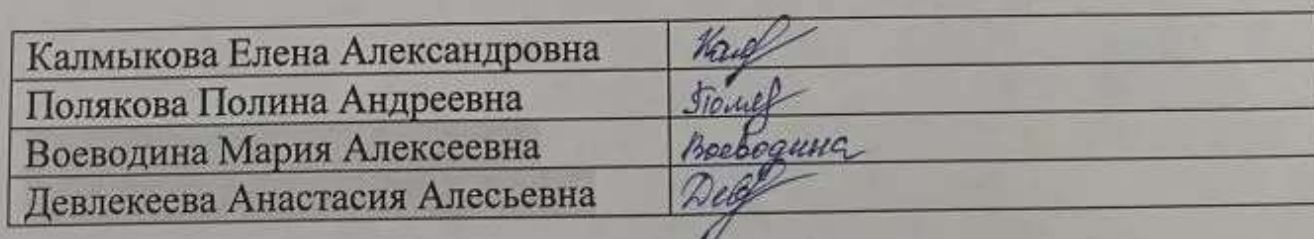 Калмыкова Елена Александровна
Полякова Полина Андреевна
Воеводина Мария Алексеевна Воеводина
Девлекеева Анастасия Алесьевна